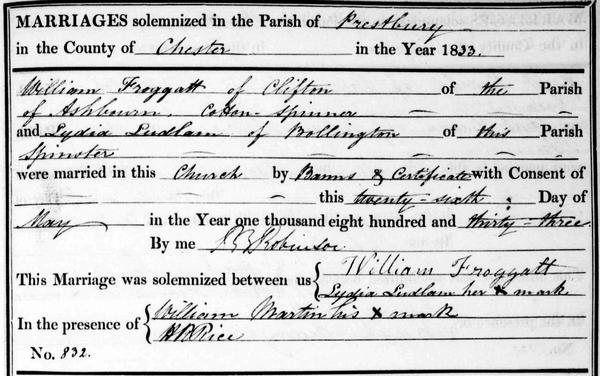 MARRIAGES solemnized in the Parish of Prestbury
in the County of Chester in the Year 1833.
William Froggatt of Clifton of the Parish
of Ashbourn, Cotton-Spinner
and Lydia Ludlam of Bollington of this Parish
Spinster
were married in this Church by Banns & Certificate with Consent of
this twenty-sixth Day of
May in the Year one thousand eight hundred and thirty-three
By me Robinson
This Marriage was solemnized between us { William Froggatt
Lydia Ludlam her x mark
In the presence of { William Martin his x mark
Rice
No. 832.